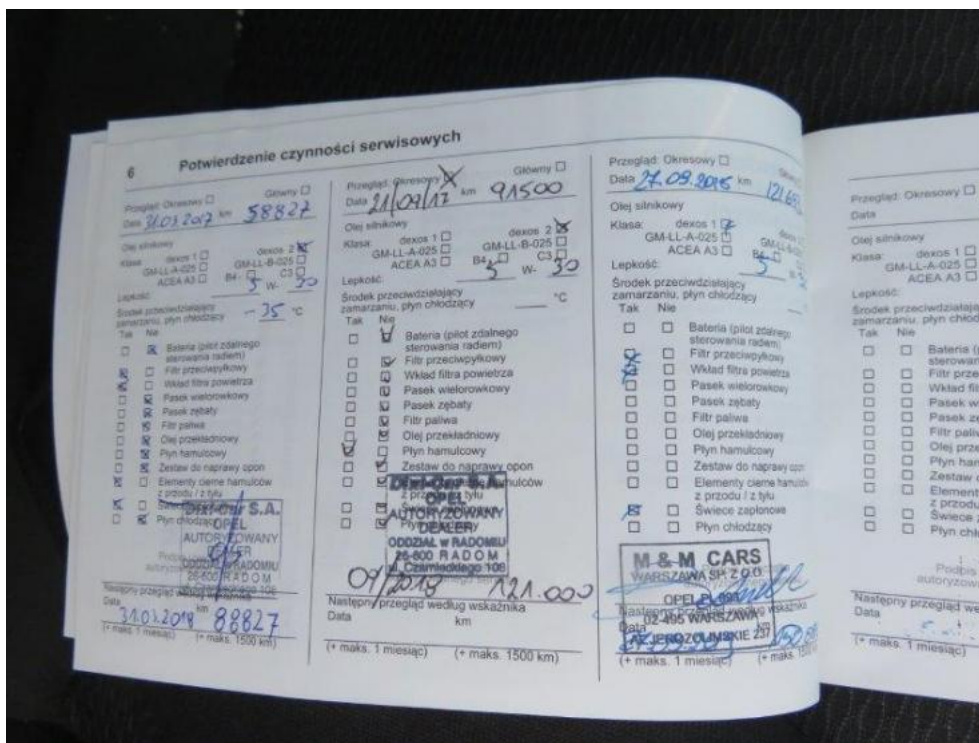 6 Potwierdzenie czynności serwisowych
Przegląd: Okresowy Główny
Data 31.03.2017 km 58827
Olej silnikowy
Klasa: dexos 1 dexos 2
GM-LL-A-025 GM-LL-B-025
ACEA A3 B4 C3
Lepkość: 5 W- 30
Środek przeciwdziałający
zamarzaniu, płyn chłodzący - 35 °C
Tak Nie
Bateria (pilot zdalnego
sterowania radiem)
Filtr przeciwpyłkowy
Wkład filtra powietrza
Pasek wielorowkowy
Pasek zębaty
Filtr paliwa
Olej przekładniowy
Płyn hamulcowy
Zestaw do naprawy opon
Elementy cierne hamulców
z przodu / z tyłu
Płyn chłodzący
Dixi-Car S.A.
OPEL
AUTORYZOWANY
DEALER
ODDZIAŁ w RADOMIU
26-600 RADOM
Następny przegląd według wskaźnika
Data 31.03.2018 km 88827
(+ maks. 1 miesiąc) (+ maks. 1500 km)
Przegląd: Okresowy Główny
Data 21/09/17 km 91500
Olej silnikowy
Klasa: dexos 1 dexos 2
GM-LL-A-025 GM-LL-B-025
ACEA A3 B4 C3
Lepkość: 5 W- 30
Środek przeciwdziałający
zamarzaniu, płyn chłodzący °C
Tak Nie
Bateria (pilot zdalnego
sterowania radiem)
Filtr przeciwpyłkowy
Wkład filtra powietrza
Pasek wielorowkowy
Pasek zębaty
Filtr paliwa
Olej przekładniowy
Płyn hamulcowy
Zestaw do naprawy opon
Elementy cierne hamulców
z przodu / z tyłu
Dixi-Car S.A.
OPEL
AUTORYZOWANY
DEALER
ODDZIAŁ w RADOMIU
26-600 RADOM
ul. Czarnieckiego 108
09/2018 121.000
Następny przegląd według wskaźnika
Data km
(+ maks. 1 miesiąc) (+ maks. 1500 km)
Przegląd: Okresowy
Data km
Olej silnikowy
Klasa: dexos 1
GM-LL-A-025
ACEA A3 B4
Lepkość: 5 W-
Środek przeciwdziałający
zamarzaniu, płyn chłodzący
Tak Nie
Bateria (pilot zdalnego
sterowania radiem)
Filtr przeciwpyłkowy
Wkład filtra powietrza
Pasek wielorowkowy
Pasek zębaty
Filtr paliwa
Olej przekładniowy
Płyn hamulcowy
Zestaw do naprawy opon
Elementy cierne hamulców
z przodu / z tyłu
Świece zapłonowe
Płyn chłodzący
M & M CARS
WARSZAWA SP. Z O.O.
OPEL
02-495 WARSZAWA
AL. JEROZOLIMSKIE 237
Następny przegląd według wskaźnika
Data
(+ maks. 1 miesiąc) (+ maks. 1500 km)
Przegląd: Okresowy
Data
Olej silnikowy
Klasa: dexos 1
GM-LL-A-025
ACEA A3
Lepkość:
Środek przeciwdziałający
zamarzaniu, płyn chłod
Tak Nie
Bateria (p
sterowan
Filtr prze
Wkład filt
Pasek w
Pasek zę
Filtr paliw
Olej prze
Płyn ham
Zestaw d
Elemen
z przodu
Świece z
Płyn chł
Podpis
autoryzow
Następny przegląd we
Data
(+ maks. 1 miesiąc)